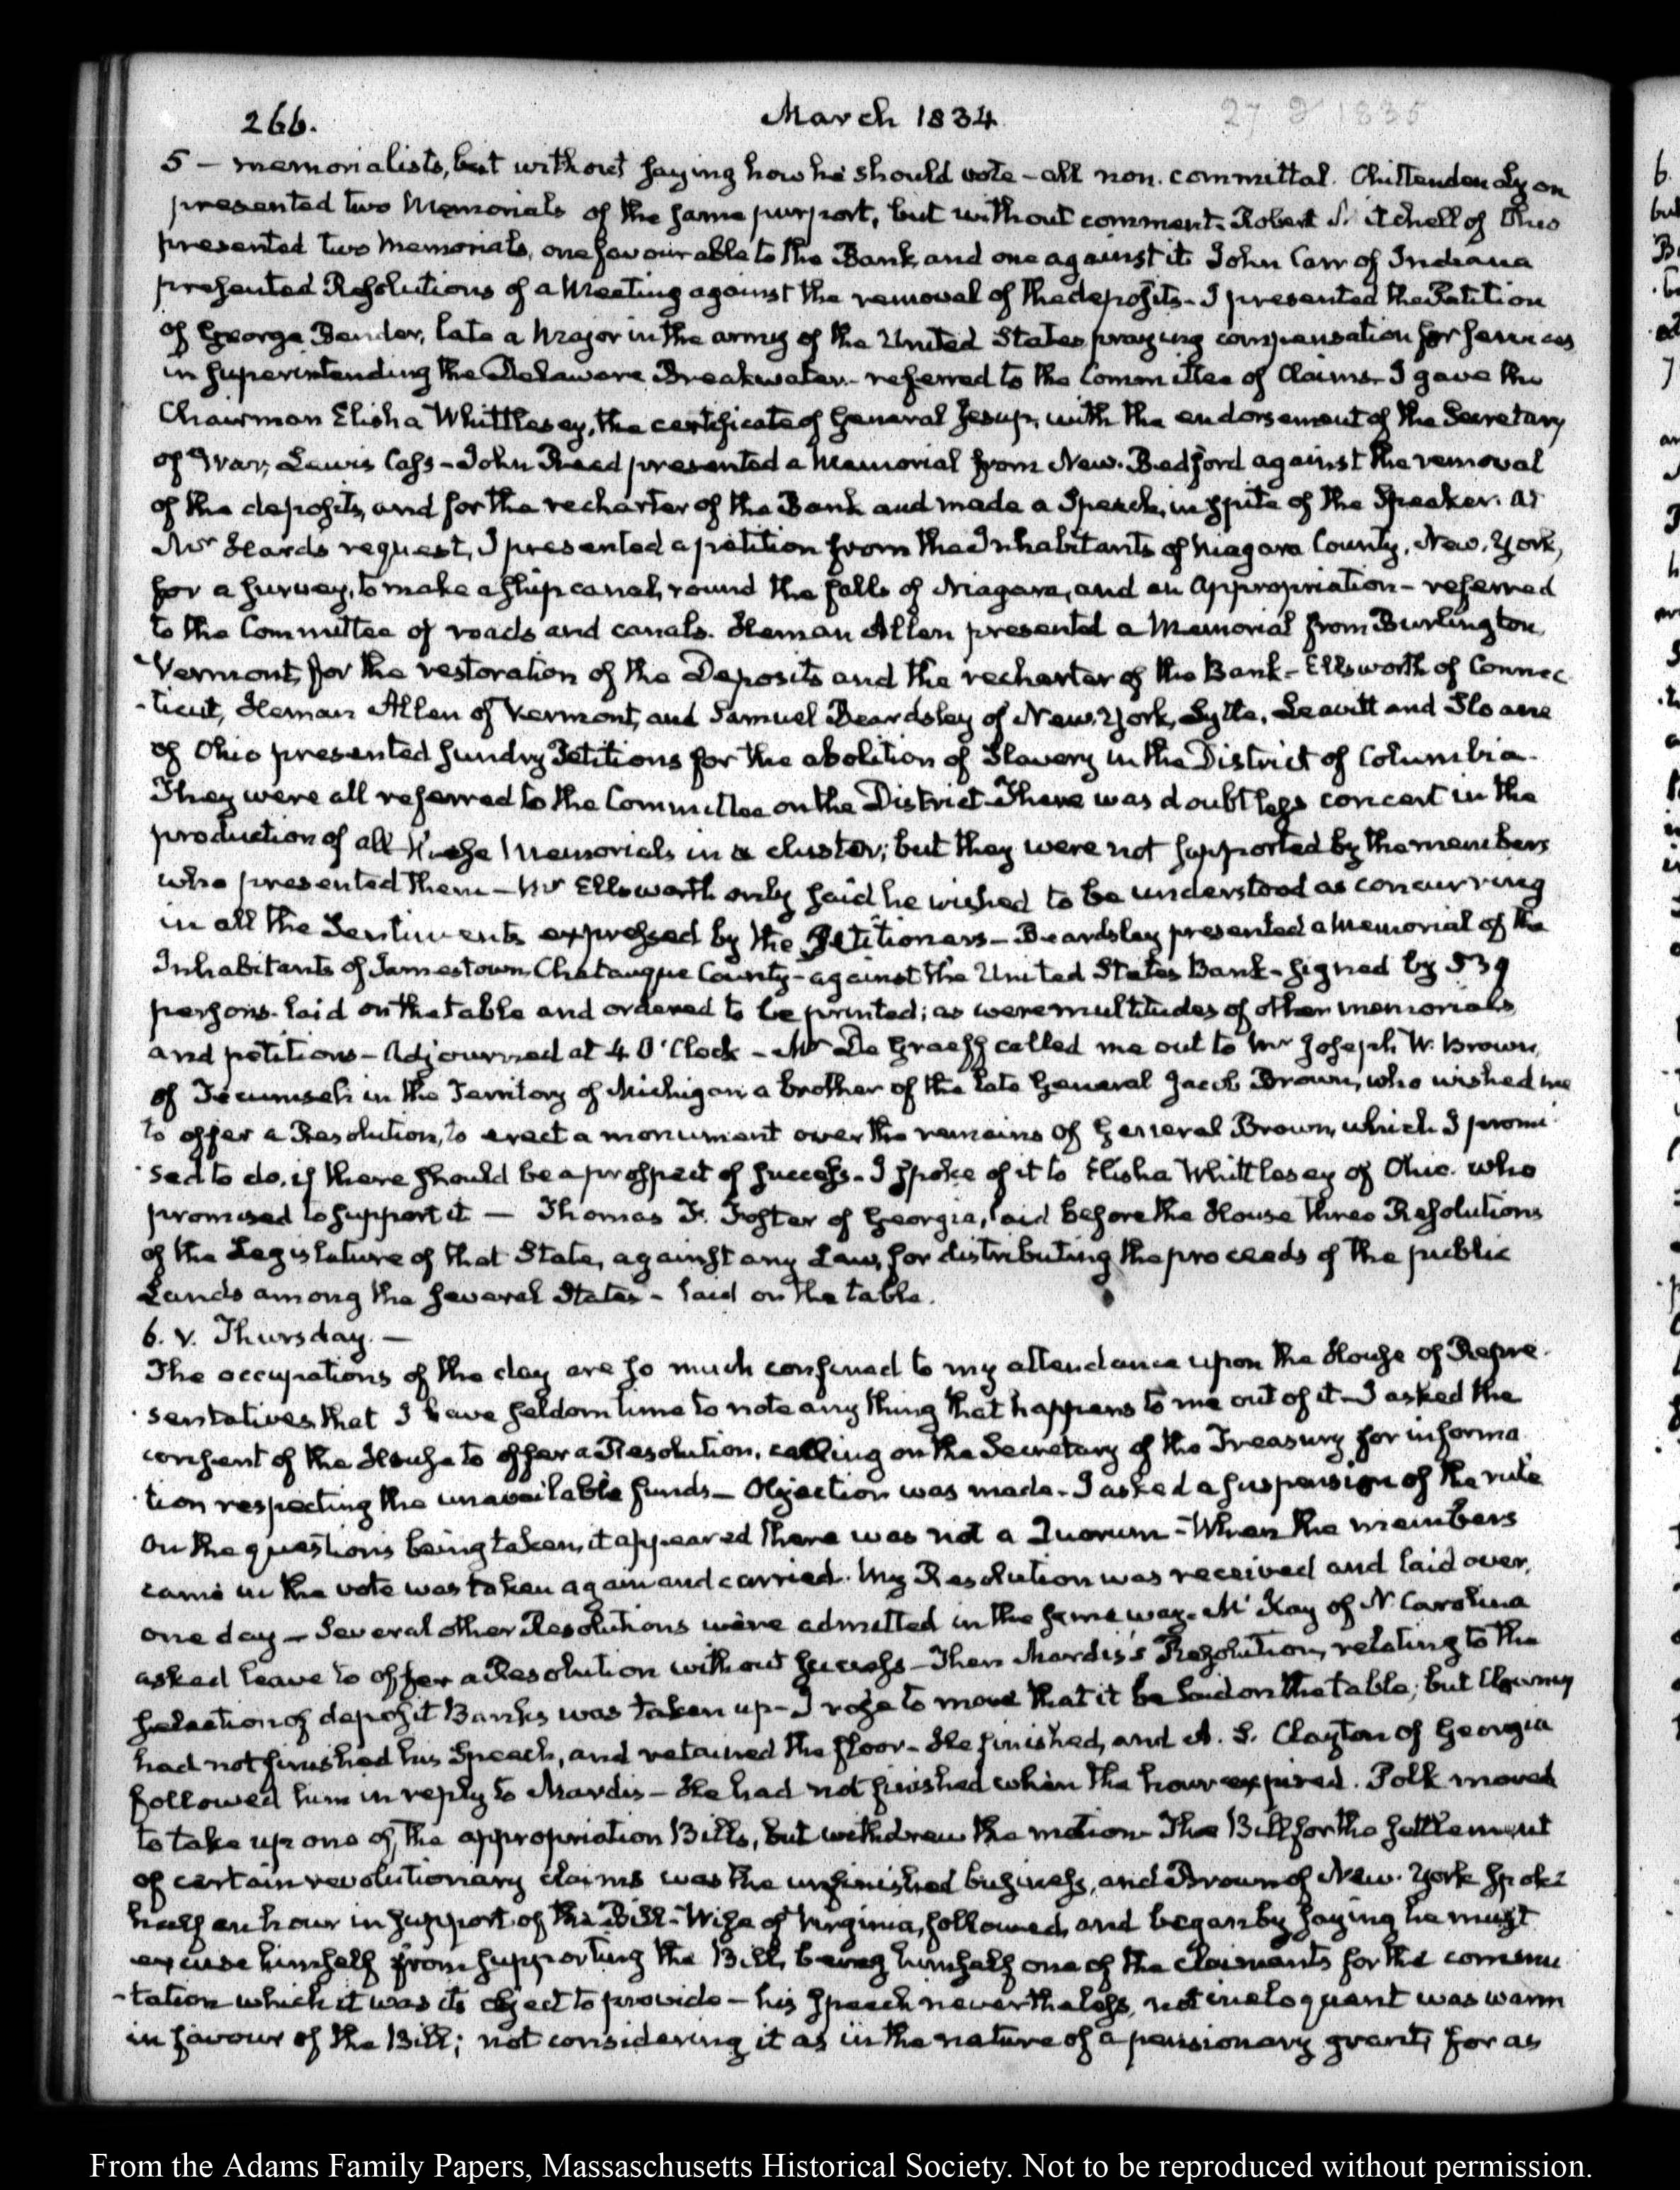 266.
March 1834
5 – memorialists, but without saying how he should vote – all non-committal. Chittenden Lyon
presented two Memorials of the same purport, but without comment. Robert Mitchell of Ohio
presented two Memorials, one favourable to the Bank, and one against it. John Carr of Indiana
presented Resolutions of a Meeting against the removal of the deposits – I presented the Petition
of George Bender, late a Major in the army of the United States, praying compensation for services
in superintending the Delaware Breakwater – referred to the Committee of Claims. I gave the
Chairman Elisha Whittlesey, the certificate of General Jesup, with the endorsement of the Secretary
of War, Lewis Cass – John Reed presented a Memorial from New-Bedford against the removal
of the deposits, and for the recharter of the Bank and made a Speech, in spite of the Speaker. At
Mr Heards request, I presented a petition from the Inhabitants of Niagara County, New-York,
for a survey, to make a ship canal, round the falls of Niagara, and an appropriation – referred
to the Committee of roads and canals. Heman Allen presented a Memorial from Burlington,
Vermont, for the restoration of the Deposits and the recharter of the Bank – Ellsworth of Connec
-ticut, Heman Allen of Vermont, and Samuel Beardsley of New-York, Lytle, Leavitt and Sloane
of Ohio presented sundry Petitions for the abolition of Slavery in the District of Columbia.
They were all referred to the Committee on the District. There was doubtless concert in the
production of all these Memorials in a cluster; but they were not supported by the members
who presented them – Mr Ellsworth only said he wished to be understood as concurring
in all the Sentiments expressed by the Petitioners – Beardsley presented a Memorial of the
Inhabitants of Jamestown, Chatauque County – against the United States Bank – signed by 539
persons. laid on the table and ordered to be printed; as were multitudes of other memorials
and petitions – Adjourned at 4 O'Clock – Mr De Graeff called me out to Mr Joseph W. Brown,
of Tecumseh in the Territory of Michigan, a brother of the late General Jacob Brown, who wished me
to offer a Resolution, to erect a monument over the remains of General Brown, which I promi
-sed to do, if there should be a prospect of success. I spoke of it to Elisha Whittlesey of Ohio. who
promised to support it – Thomas F. Foster of Georgia, laid before the House three Resolutions
of the Legislature of that State, against any Law, for distributing the proceeds of the public
Lands among the several States – laid on the table.
6. V. Thursday. –
The occupations of the day are so much confined to my attendance upon the House of Repre-
-sentatives that I have seldom time to note any thing that happens to me out of it – I asked the
consent of the House to offer a Resolution, calling on the Secretary of the Treasury for informa
-tion respecting the unavailable funds – Objection was made – I asked a suspension of the rule
On the questions being taken, it appeared there was not a Quorum – When the members
came in the vote was taken again and carried. My Resolution was received and laid over,
one day – Several other Resolutions were admitted in the same way – McKay of N. Carolina
asked leave to offer a Resolution without success – Then Mardis's Resolution, relating to the
selection of deposit Banks was taken up – I rose to move that it be laid on the table; but
had not finished his Speech, and retained the floor – He finished, and A. S. Clayton of Georgia
followed him in reply to Mardis – He had not finished when the hour expired. Polk moved
to take up one of the appropriation Bills, but withdrew the motion. The Bill for the settlement
of certain revolutionary claims was the unfinished business, and Brown of New-York spoke
half an hour in support of the Bill – Wise of Virginia, followed, and began by saying he must
excuse himself from supporting the Bill, being himself one of the claimants for the commu
-tation which it was its object to provide – his speech nevertheless, not ineloquent was warm
in favour of the Bill; not considering it as in the nature of a pensionary grant, for as
From the Adams Family Papers, Massachusetts Historical Society. Not to be reproduced without permission.